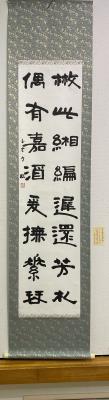 披此緗編遲還芳札
偶有嘉酒爰撫素琴